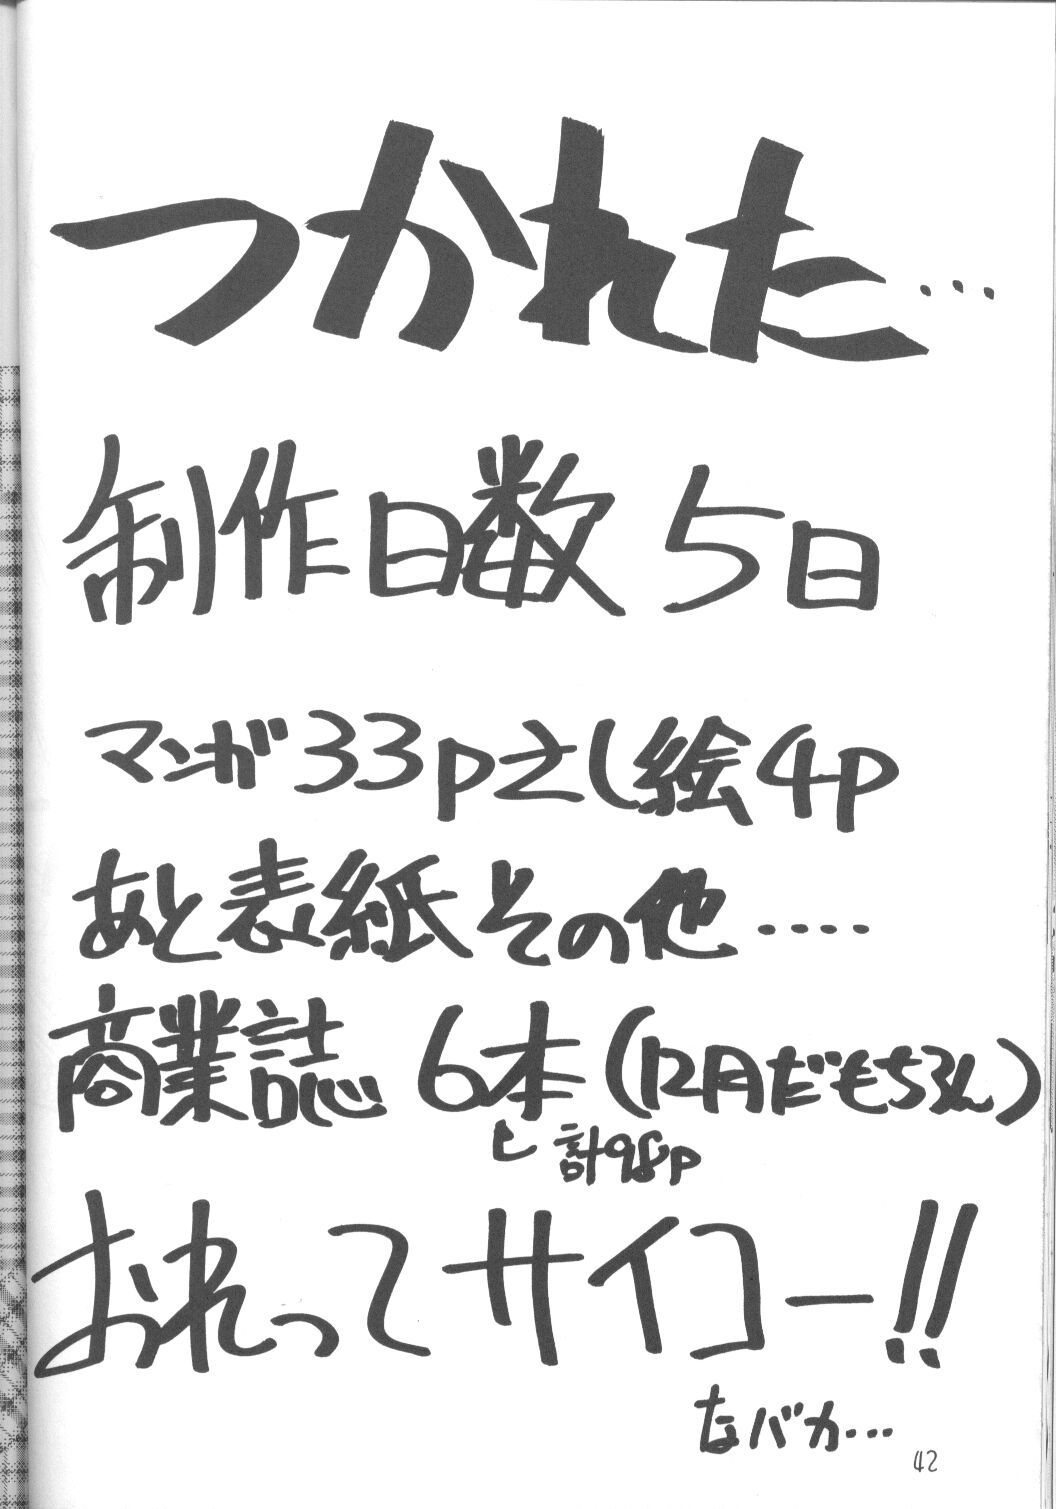 つかれた…
制作日数 5日
マンガ33pさし絵4p
あと表紙その他‥‥
商業誌 6本(12月だもちろん)
計98p
おれってサイコー!!
なバカ…
42